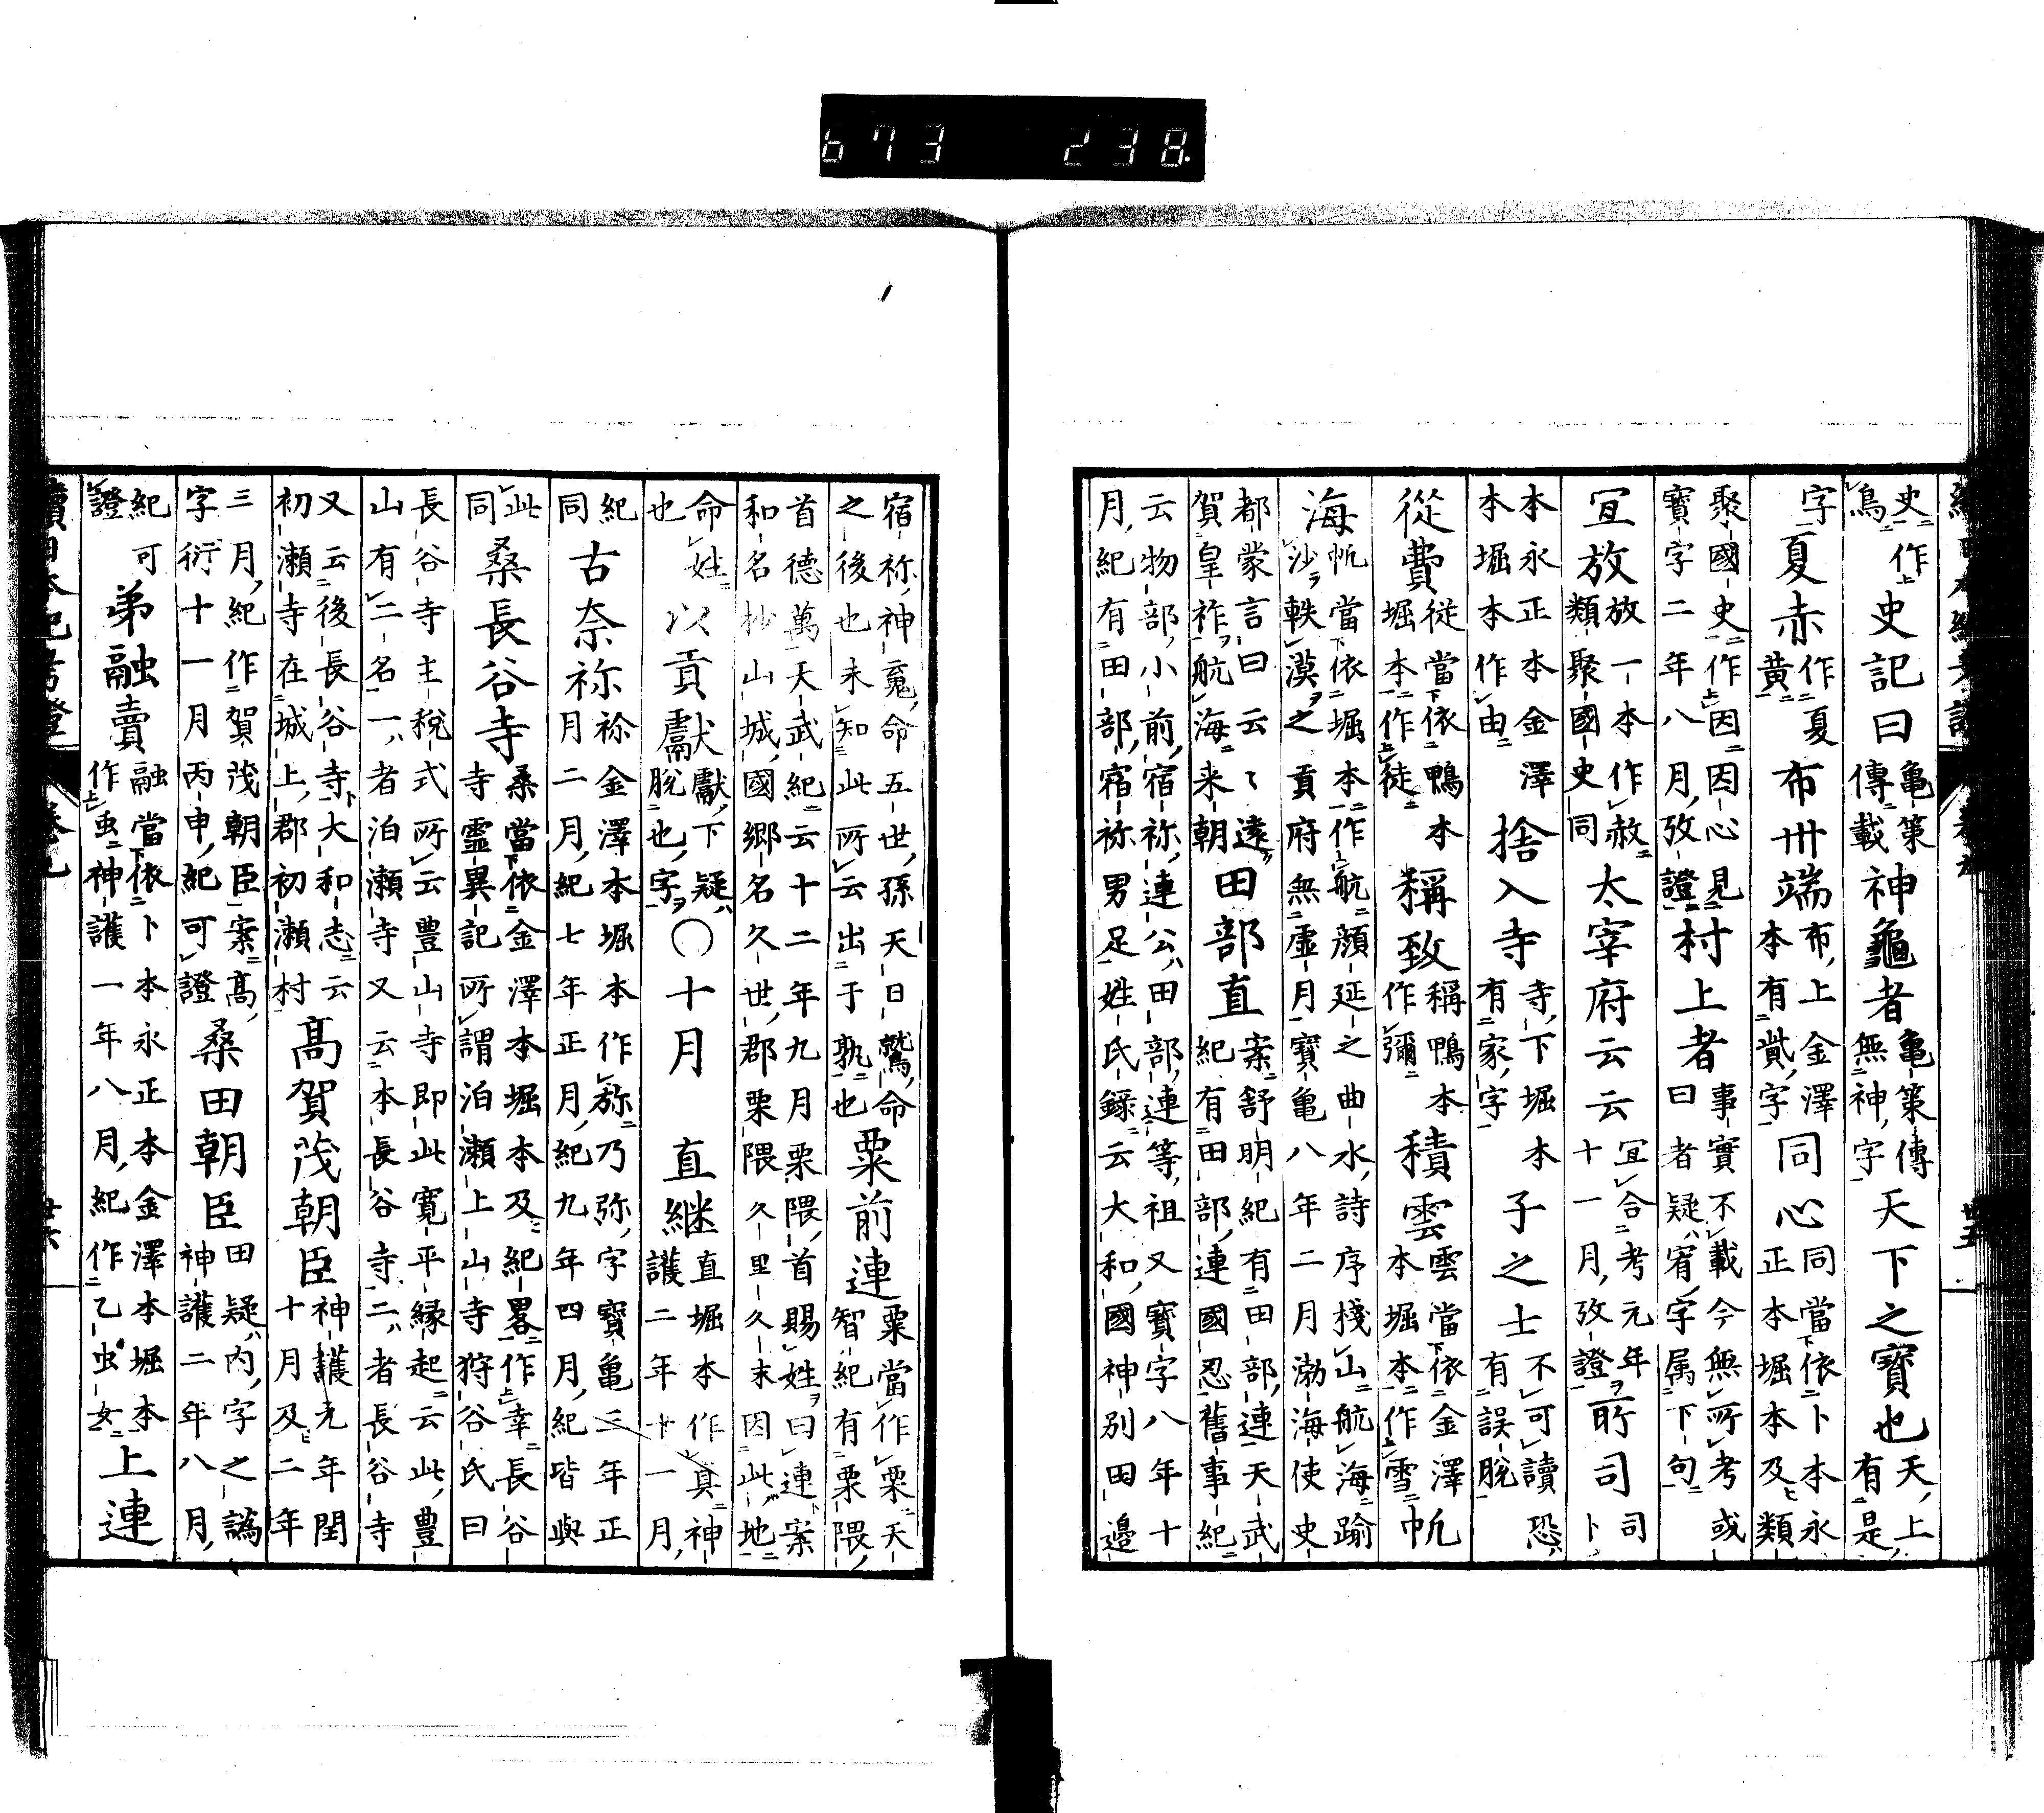 673 238
史作
鳥史記曰亀策
傳載神龜者亀策傳
無神字天下之寶也天上
有是
字夏赤作夏
黄布卅端布上金澤
本有貲字同心同當依卜本永
正本堀本及類
聚國史作因因心見
寶字二年八月攷證村上者事實不載今無所考或
曰者疑宥字属下句
宜放放一本作赦
類聚國史同太宰府云云宜合考元年
十一月攷證所司司卜
本永正本金澤
本堀本作由捨入寺寺下堀本
有家字子之士不可讀恐
有誤脫
從費從當依鴨本
堀本作徒稱致稱鴨本
作彌積雲雲當依金澤
本堀本作雪帆
海帆當依堀本作航顔延之曲水詩序棧山航海踰
沙軼漠之貢府無虚月寶亀八年二月渤海使史
都蒙言曰云々遠
賀皇祚航海来朝田部直案舒明紀有田部連天武
紀有田部連國忍舊事紀
云物部小前宿祢連公田部連等祖又寶字八年十
月紀有田部宿祢男足姓氏録云大和國神別田邉
宿祢神魂命五世孫天日鷲命
之後也未知此所云出于孰也粟前連粟當作栗天
智紀有栗隈
首德萬天武紀云十二年九月栗隈首賜姓曰連案
和名抄山城國郷名久世郡栗隈久里久末因此地
命姓
也以貢獻獻下疑
脫也字〇十月直継直堀本作真神
護二年十一月
紀
同古奈祢祢金澤本堀本作祢乃弥字寶亀三年正
月二月紀七年正月紀九年四月紀皆與
此
同桑長谷寺桑當依金澤本堀本及紀畧作幸長谷
寺霊異記所謂泊瀬上山寺狩谷氏曰
長谷寺主税式所云豊山寺即此寛平縁起云此豊
山有二名一者泊瀬寺又云本長谷寺二者長谷寺
又云後長谷寺大和志云
初瀬寺在城上郡初瀬村髙賀茂朝臣神護元年閏
十月及二年
三月紀作賀茂朝臣案髙
字衍十一月丙申紀可證桑田朝臣田疑内字之譌
神護二年八月
紀可
證弟融賣融當依卜本永正本金澤本堀本
作虫神護一年八月紀作乙虫女上連